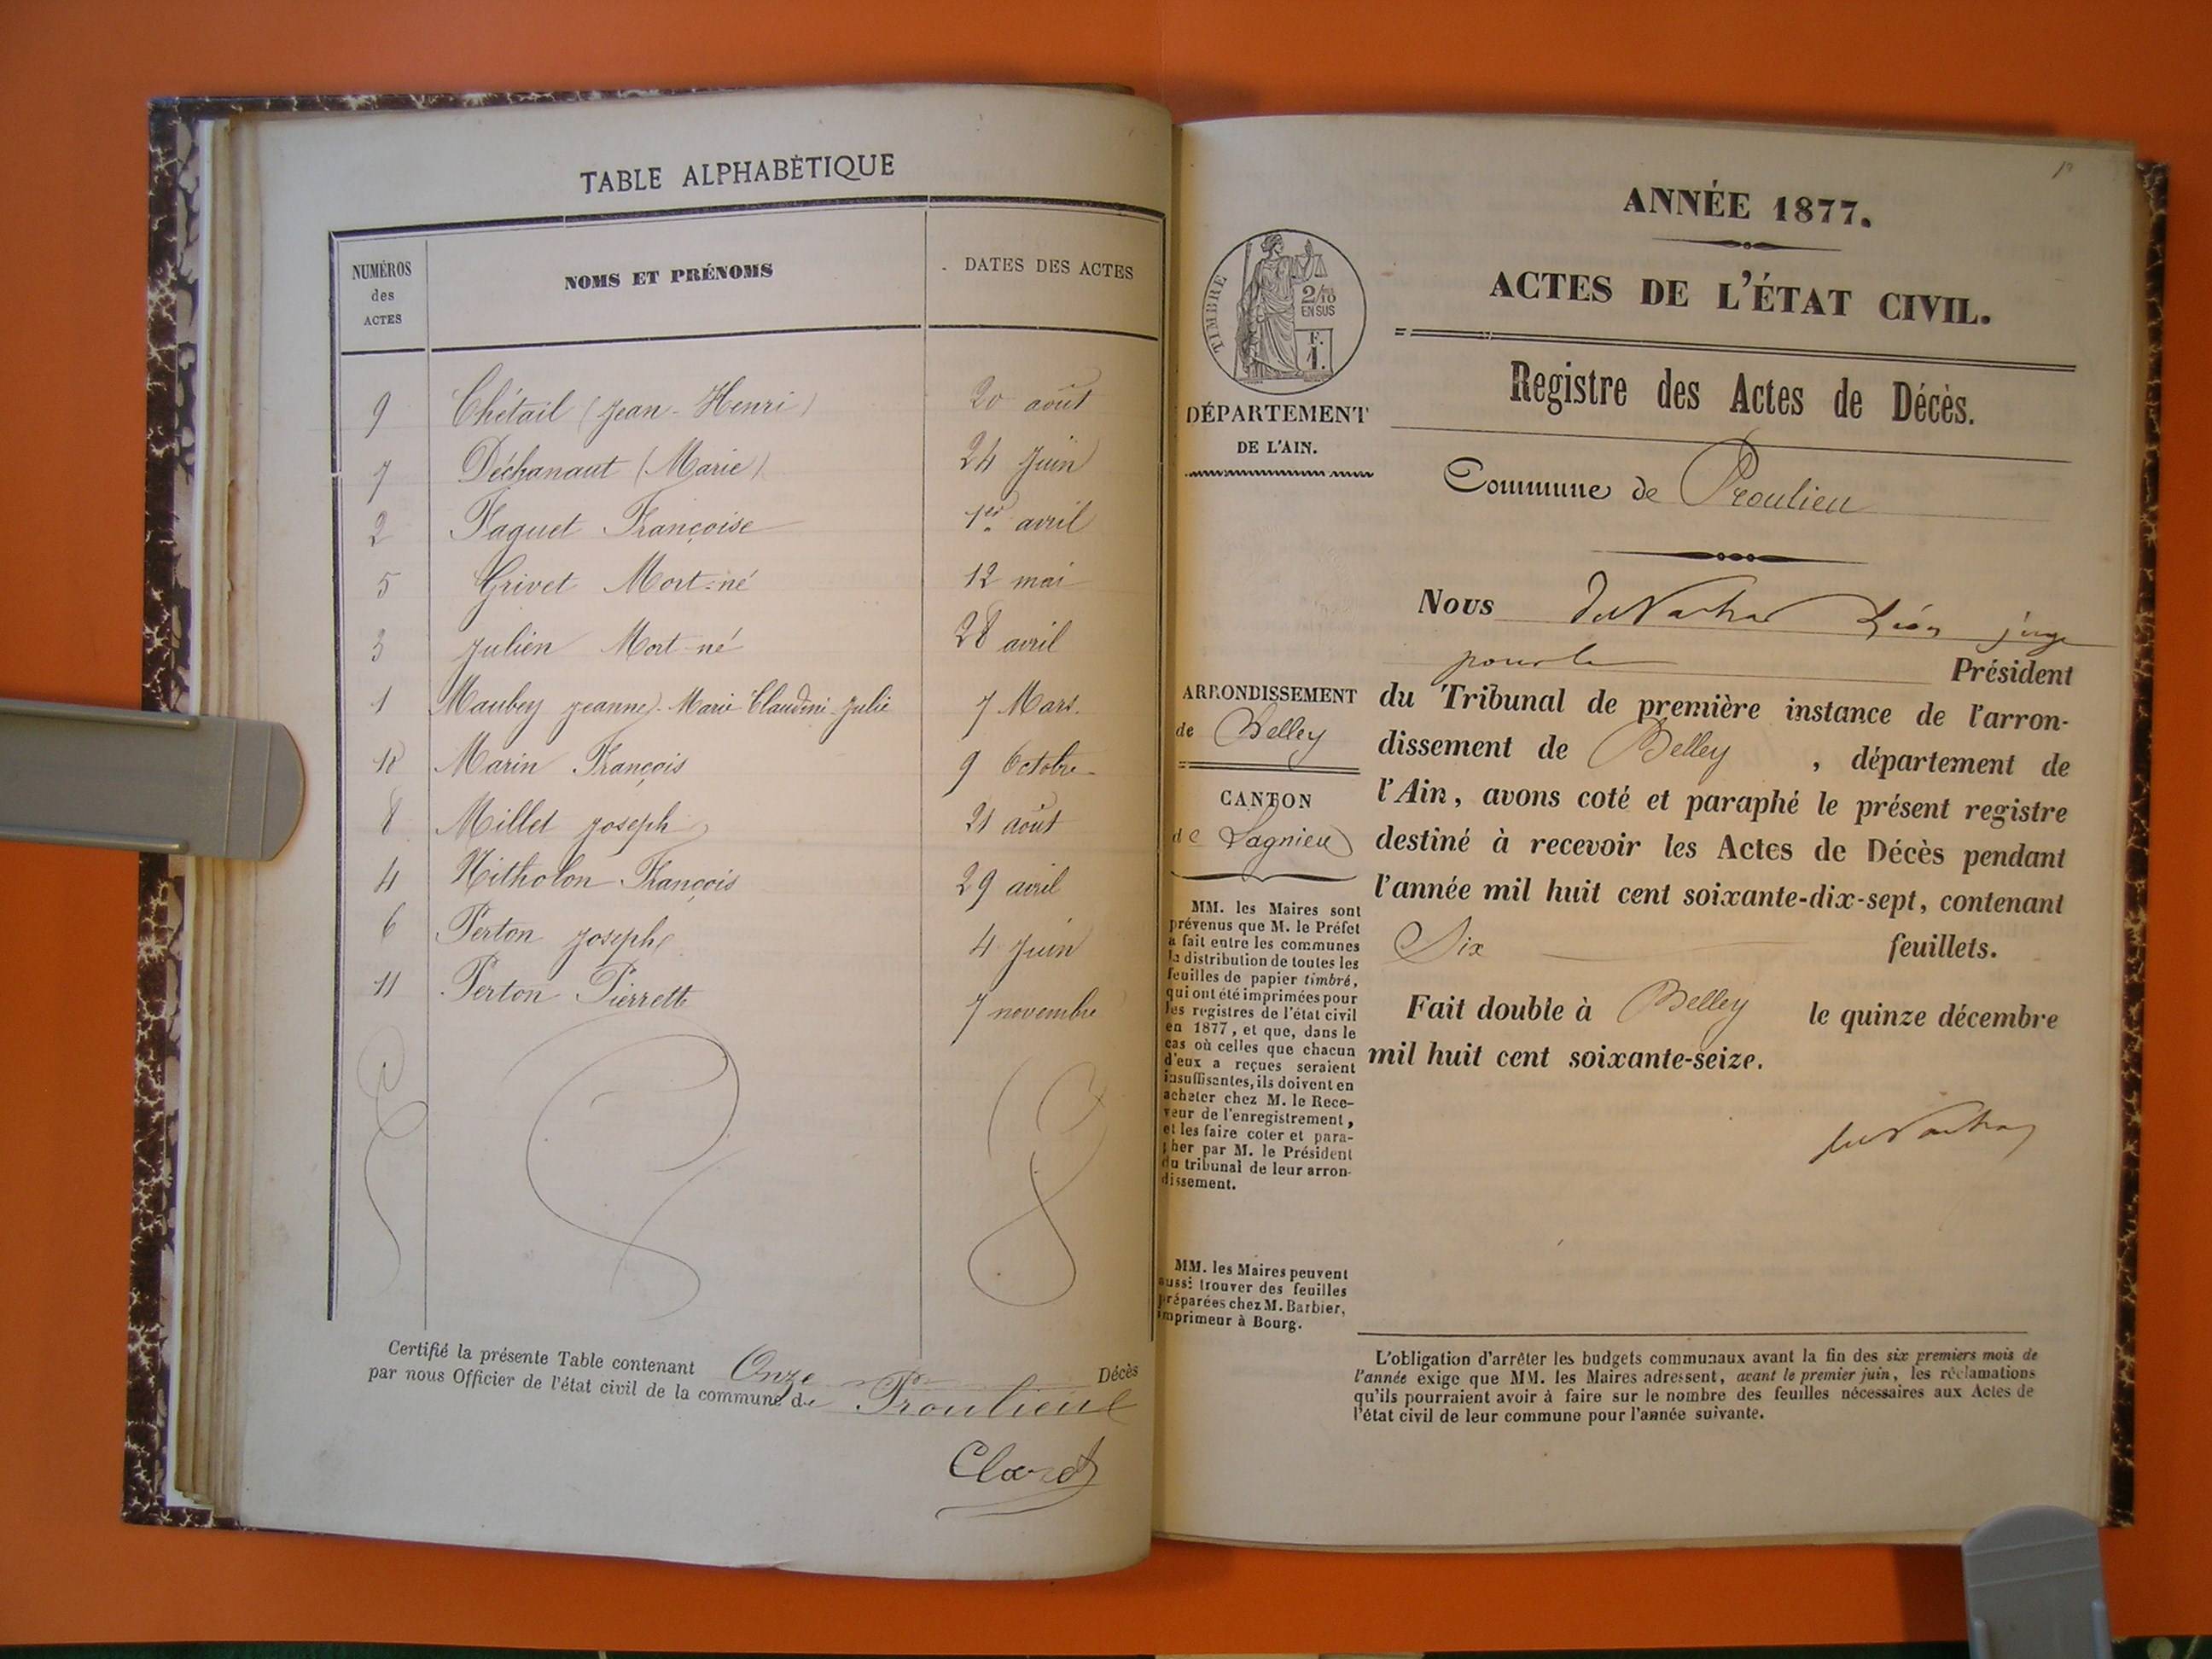 TABLE ALPHABÉTIQUE
NUMÉROS des ACTES NOMS ET PRÉNOMS DATES DES ACTES
9 Chétail (Jean-Henri) 20 août
7 Déchanaut (Marie) 24 Juin
2 Faguet Françoise 1er avril
5 Grivet Mort-né 12 mai
3 Julien Mort-né 28 avril
1 Maubey Jeanne-Marie Claudine Julie 7 Mars.
10 Marin François 9 Octobre
8 Millet Joseph 21 août
4 Nitholon François 29 avril
6 Perton Joseph 4 Juin
11 Perton Pierrette 7 novembre
Certifié la présente Table contenant Onze Décès
par nous Officier de l'état civil de la commune de Proulieu
Claret
ANNÉE 1877.
ACTES DE L'ÉTAT CIVIL.
Registre des Actes de Décès.
TIMBRE
2/10
EN SUS
F.
1.
DÉPARTEMENT
DE L'AIN.
Commune de Proulieu
ARRONDISSEMENT
de Belley
CANTON
de Lagnieu
MM. les Maires sont
prévenus que M. le Préfet
a fait entre les communes
la distribution de toutes les
feuilles de papier timbré,
qui ont été imprimées pour
les registres de l'état civil
en 1877, et que, dans le
cas où celles que chacun
d'eux a reçues seraient
insuffisantes, ils doivent en
acheter chez M. le Rece-
veur de l'enregistrement,
et les faire coter et para-
pher par M. le Président
du tribunal de leur arron-
dissement.
MM. les Maires peuvent
aussi trouver des feuilles
préparées chez M. Barbier,
imprimeur à Bourg.
Nous Léon juge
pour le Président
du Tribunal de première instance de l'arron-
dissement de Belley, département de
l'Ain, avons coté et paraphé le présent registre
destiné à recevoir les Actes de Décès pendant
l'année mil huit cent soixante-dix-sept, contenant
Six feuillets.
Fait double à Belley le quinze décembre
mil huit cent soixante-seize.
L'obligation d'arrêter les budgets communaux avant la fin des six premiers mois de
l'année exige que MM. les Maires adressent, avant le premier juin, les réclamations
qu'ils pourraient avoir à faire sur le nombre des feuilles nécessaires aux Actes de
l'état civil de leur commune pour l'année suivante.